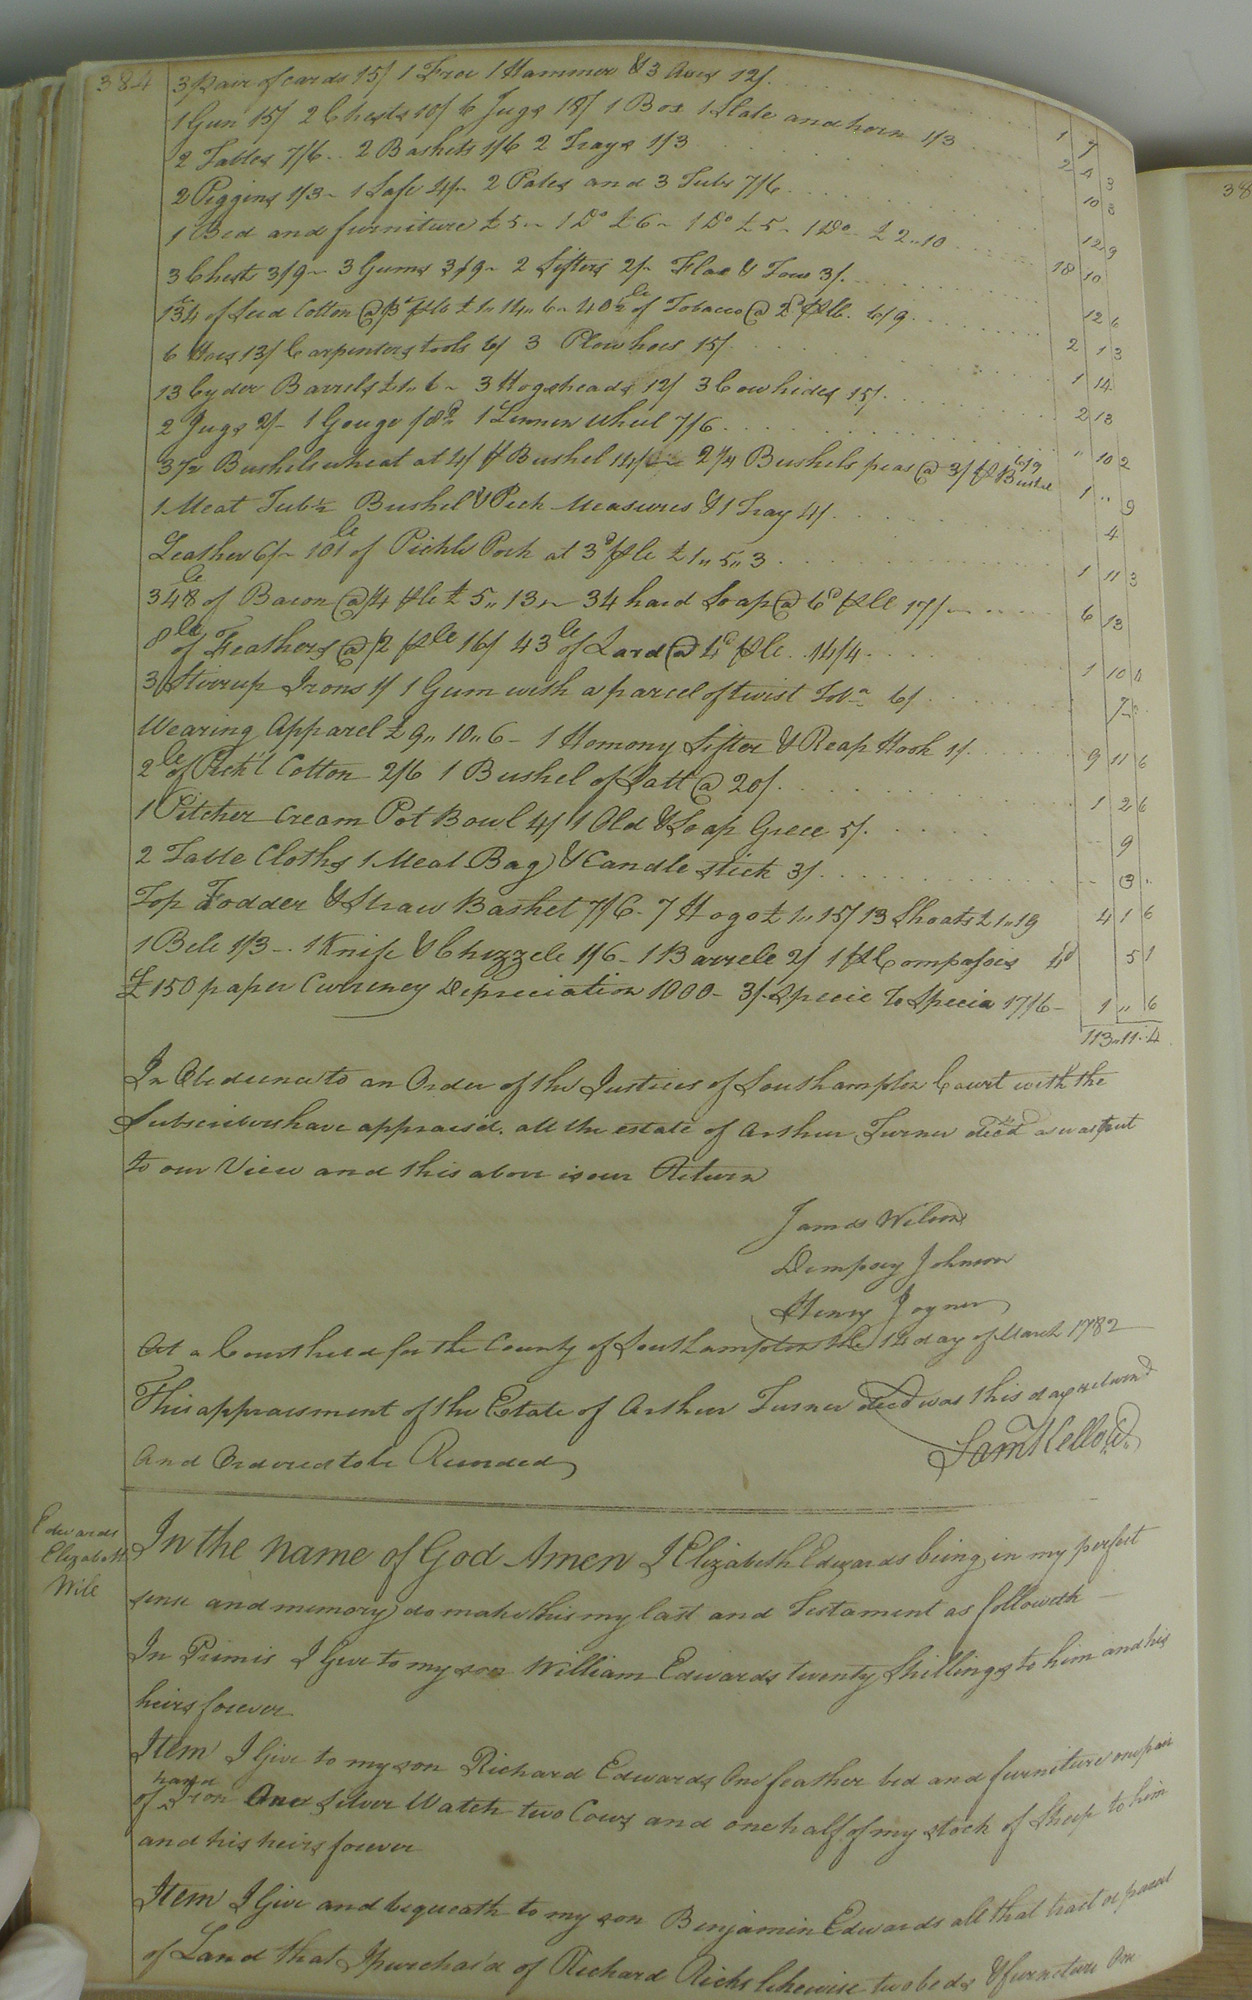 384
3 Pair of cards 15/ 1 Froe 1 Hammer & 3 Axes 12/. 1 7
1 Gun 15/ 2 Chests 10/ 6 Jugs 18/ 1 Box 1 Slate and horn 1/3 2 4 3
2 Tables 7/6 .. 2 Baskets 1/6 2 Trays 1/3 10 3
2 Piggins 1/3 - 1 Safe 4/- 2 Pales and 3 Tubs 7/6 12 9
1 Bed and furniture £5 - 1 Do £6 - 1 Do £5 - 1 Do £2..10 18 10
3 Chests 3/9 - 3 Gums 3/9 - 2 Sifters 2/- Flax & Tow 3/. 12 6
134 of Seed Cotton @ 3d plb £1..14..6 - 40½ lb of Tobacco @ 2d plb. 6/9 2 1 3
6 Hoes 13/ Carpenters tools 6/ 3 Plowhoes 15/ 1 14
13 Cyder Barrels £1..6 - 3 Hogsheads 12/ 3 Cowhides 15/. 2 13
2 Jugs 2/- 1 Gouge /8d 1 Linnen Wheel 7/6 " 10 2
3½ Bushels wheat at 4/ p Bushel 14/ 2¼ Bushels peas @ 3/ p Bushel 6/9 1 " 9
1 Meat Tub ½ Bushel & Peck Measures & 1 Tray 4/. 4
Leather 6/- 101 lb of Pickle Pork at 3d plb £1..5..3 1 11 3
348 lb of Bacon @ /4 plb £5..13..- 34 hard Soap @ 6d plb 17/- 6 13
8 lb of Feathers @ /2 plb 16/ 43 lb of Lard @ 4d plb .. 14/4 1 10 4
3 Stirrup Irons 1/ 1 Gum with a parcel of twist Toba. 6/ 7
Wearing Apparel £9..10..6 - 1 Homony Sifter & Reap Hook 1/. 9 11 6
2 lb of Pick'd Cotton 2/6 1 Bushel of Salt @ 20/. 1 2 6
1 Pitcher Cream Pot Bowl 4/ 1 Old & Soap Grece 5/. 9
2 Table Cloths 1 Meal Bag & Candle stick 3/. 3
Top Fodder & Straw Basket 7/6 - 7 Hogs £1..15/ 13 Shoats £1..19 4 1 6
1 Bell 1/3 -. 1 Knife & Chizzele 1/6 - 1 Barrele 2/ 1 p Compasses 4d 5 1
£150 paper Currency Depreciation 1000 - 3/. Specie To Specia 17/6 - 1 " 6
113..11..4
In Obedience to an Order of the Justices of Southampton Court with the
Subscribers have appraised. all the estate of Arthur Turner decd as was put
to our View and this above is our Return
James Wilson
Dempsey Johnson
Henry Joyner
At a Court held for the County of Southampton the 14 day of March 1782
This appraisment of the Estate of Arthur Turner decd was this day returnd
And Ordered to be Recorded
Sam Kello C.
Edwards
Elizabeth
Wile
In the name of God Amen I Elizabeth Edwards being in my perfect
sense and memory do make this my last and Testament as followeth
In Primis I Give to my son William Edwards twenty Shillings to him and his
heirs forever
Item I Give to my son Richard Edwards One feather bed and furniture one pair
of hand Iron One Silver Watch two Cows and one half of my stock of Sheep to him
and his heirs forever
Item I Give and bequeath to my son Benjamin Edwards all that tract or parcel
of Land that I purchas'd of Richard Ricks likewise two beds & furneture One